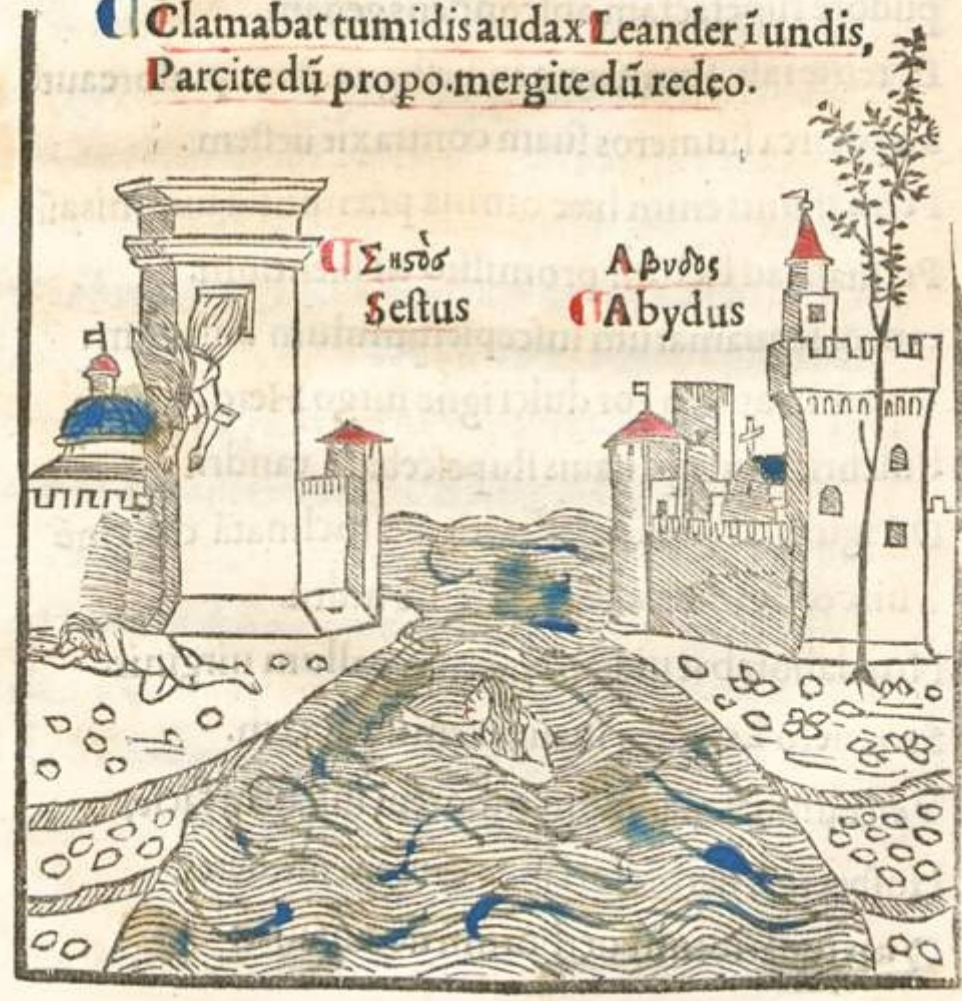 Clamabat tumidis audax Leander ī undis,
Parcite dū propo. mergite dū redeo.
Σηστὸσ
Sestus
Αβυδος
Abydus